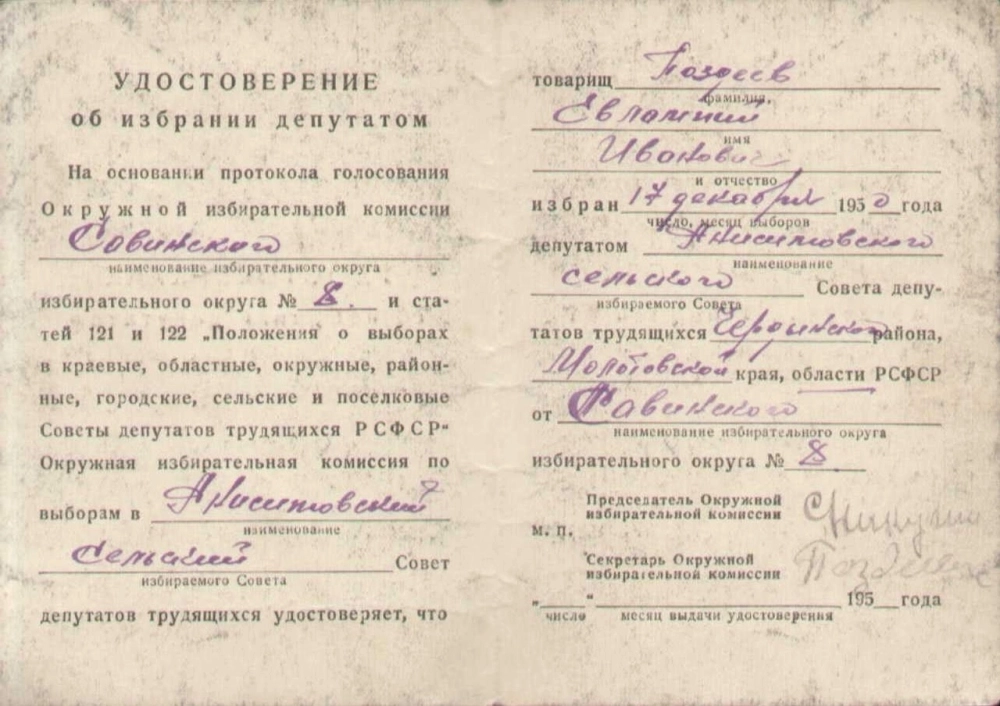 УДОСТОВЕРЕНИЕ
об избрании депутатом
На основании протокола голосования
Окружной избирательной комиссии
Савинского
наименование избирательного округа
избирательного округа № 8. и ста-
тей 121 и 122 „Положения о выборах
в краевые, областные, окружные, район-
ные, городские, сельские и поселковые
Советы депутатов трудящихся РСФСР“
Окружная избирательная комиссия по
выборам в Анисимовский
наименование
Сельский Совет
избираемого Совета
депутатов трудящихся удостоверяет, что
товарищ Поздеев
фамилия,
Евлампий
имя
Иванович
и отчество
избран 17 декабря 1950 года
число, месяц выборов
депутатом Анисимовского
наименование
сельского Совета депу-
избираемого Совета
татов трудящихся Чердынского района,
Молотовской края, области РСФСР
от Савинского
наименование избирательного округа
избирательного округа № 8
Председатель Окружной
избирательной комиссии
м. п.
Секретарь Окружной
избирательной комиссии
„ “ 195 года
число месяц выдачи удостоверения